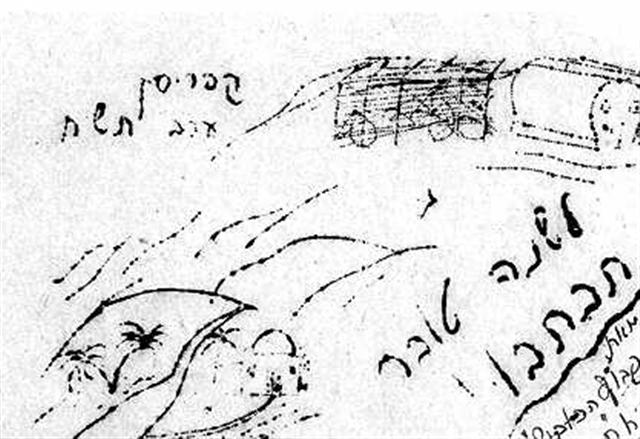 קפריסין
ערב תש״ח
לשנה
טובה
תכתבו